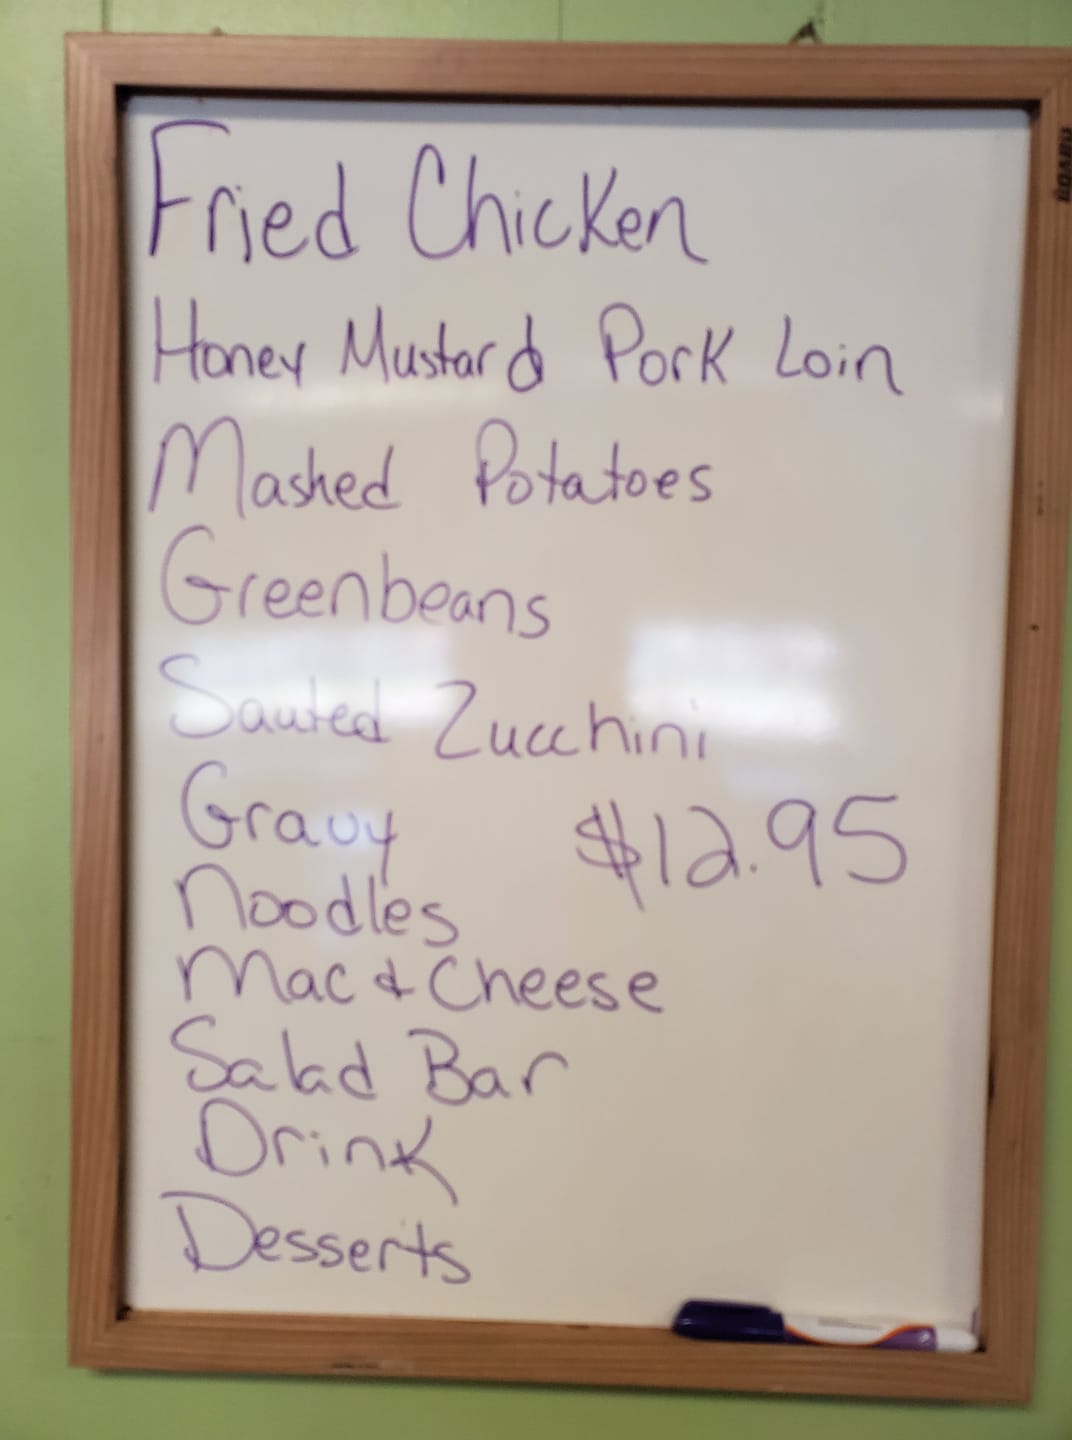 Fried Chicken
Honey Mustard Pork Loin
Mashed Potatoes
Greenbeans
Sauted Zucchini
Gravy $12.95
Noodles
Mac & Cheese
Salad Bar
Drink
Desserts